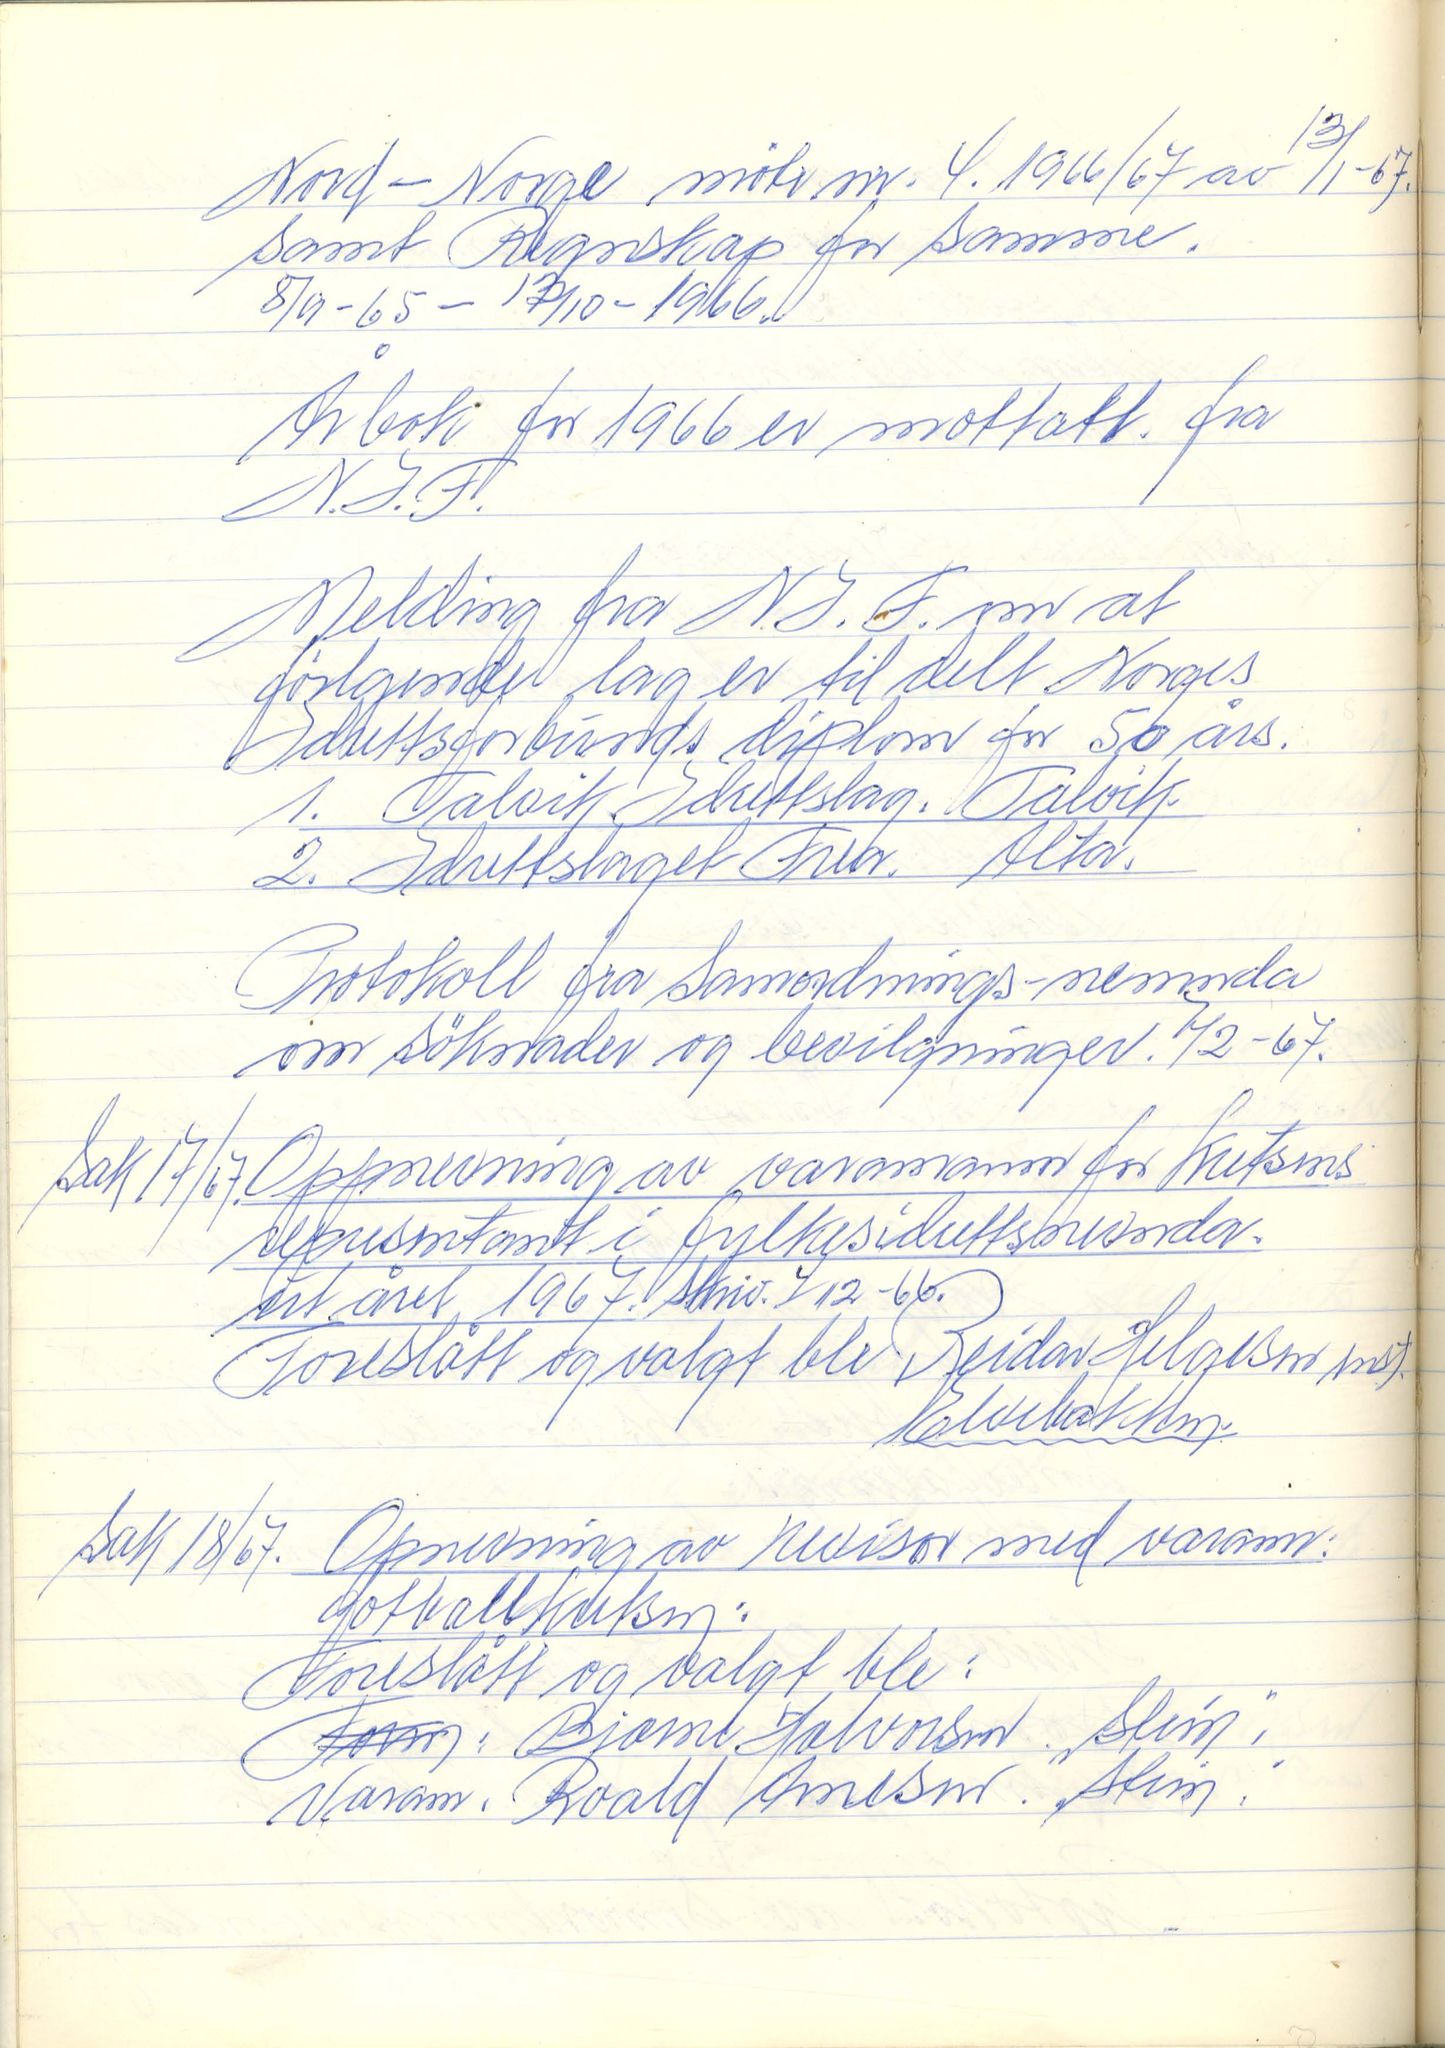 Nord-Norge möte nr. 4. 1966/67 av 13/1-67.
samt Regnskap for samme.
8/9-65 - 13/10-1966.
Årbok for 1966 er mottatt. fra
N.I.F.
Melding fra N.I.F. om at
følgende lag er til delt Norges
Idrettsforbunds diplom for 50 års.
1. Talvik Idrettslag. Talvik
2. Idrettslaget Frea. Alta.
Protokoll fra Samordnings-nemnda
om söknader og bevilgninger. 7/2-67.
Sak 17/67. Oppnevning av varamann for Kretsens
representant i fylkesidrettsnevnda.
ut året 1967. Skriv. 7/12-66.
Foreslått og valgt ble Reidar Helgesen
Elvebakken.
Sak 18/67. Opnevning av revisor med varam.
fotballkretsen:
Foreslått og valgt ble:
Form: Bjarne Halvorsen. "Stein".
Varam. Roald Arnesen. "Stein".